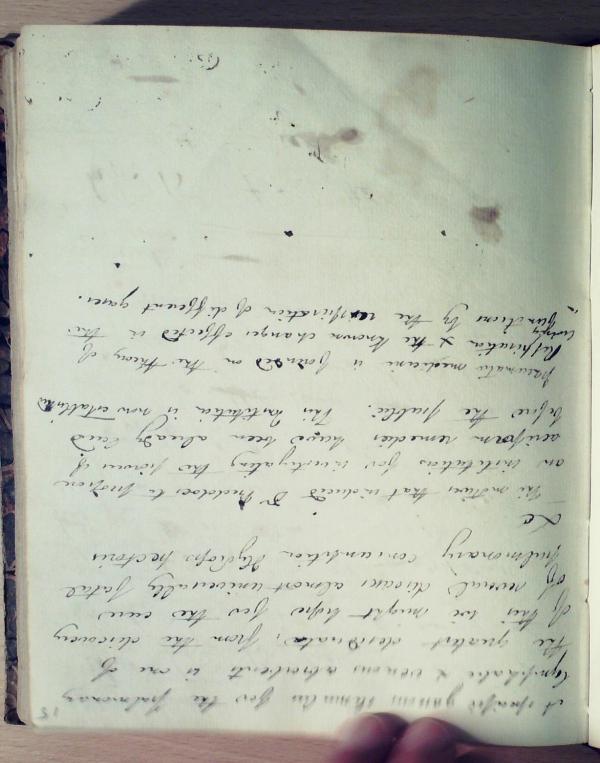 15
A specific gaseous stimulus for the pulmonary
lymphatic & venous absorbents is one of
the greatest desiderata, from the discovery
of this we might hope for the cure
of several diseases almost universally fatal
Pulmonary consumption Hydrops pectoris
&c
The motives that induced Dr Beddoes to propose
an institution for investigating the powers of
aeriform remedies have been already laid
before the public. This institution is now established
Pneumatic medicine is founded on the theory of
Respiration & the known changes effected in the
living
functions by the respiration of different gases.